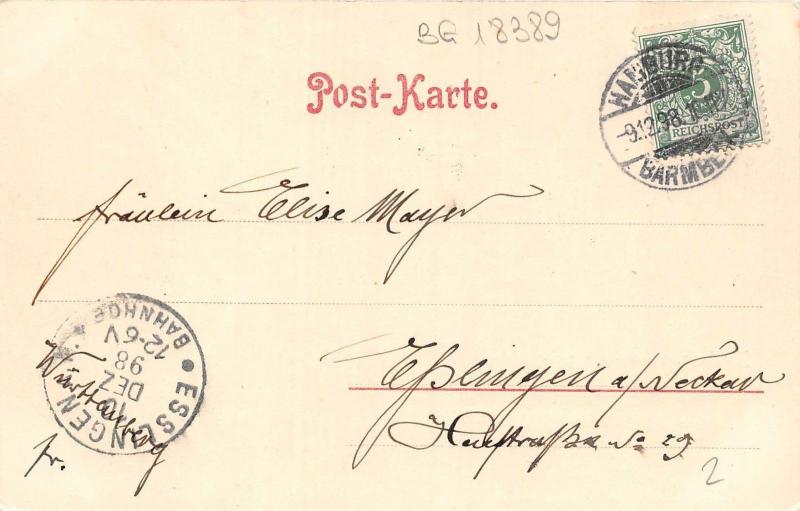 BG 18389
Post-Karte.
HAMBURG
5
REICHSPOST
9.12.98.
BARMBE
Fräulein Elise Mayer
ESSLINGEN
10
DEZ
98
12-6V
BAHNHOF
Württemberg
fr.
Eßlingen a/Neckar
No 29
2